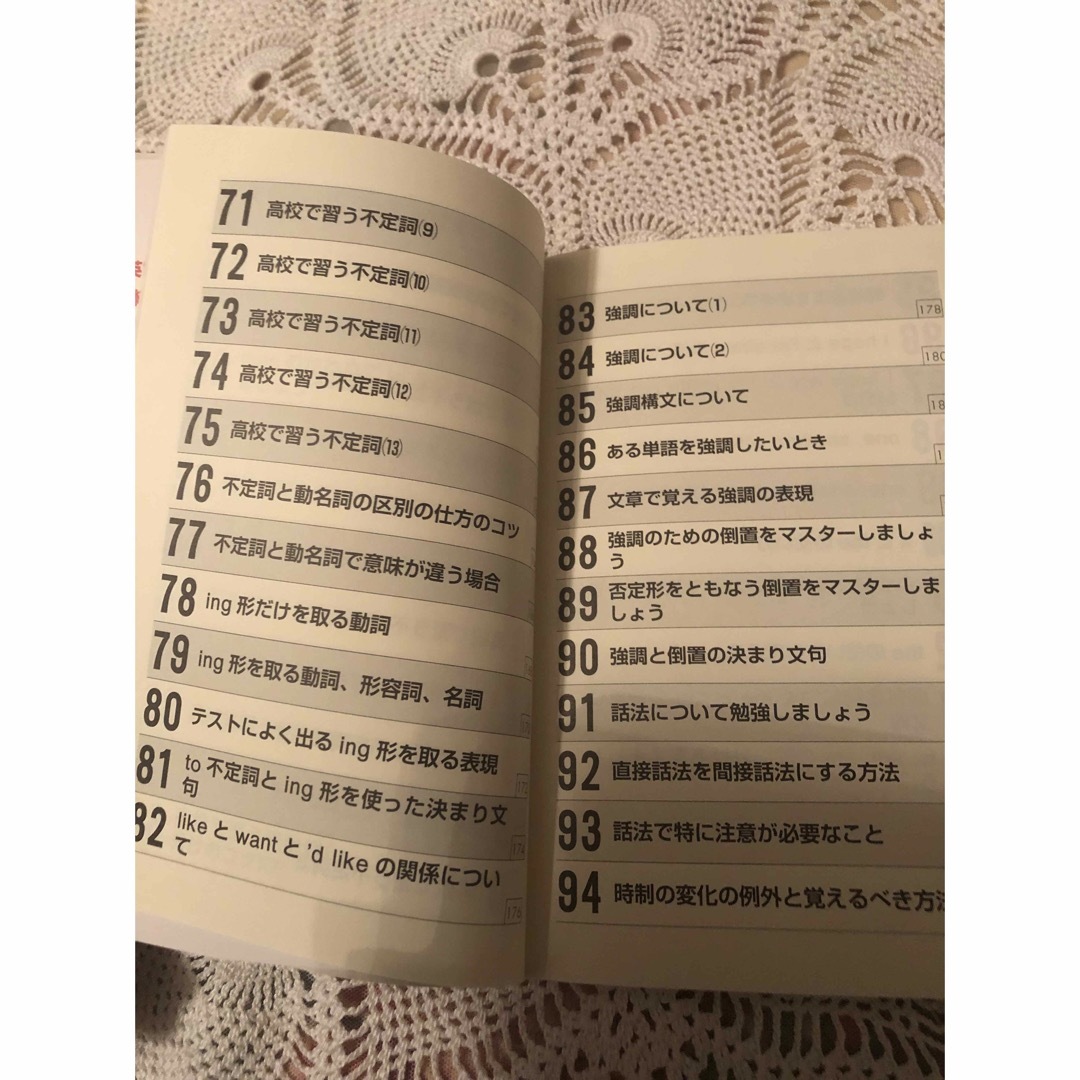 71 高校で習う不定詞(9)
72 高校で習う不定詞(10)
73 高校で習う不定詞(11)
74 高校で習う不定詞(12)
75 高校で習う不定詞(13)
76 不定詞と動名詞の区別の仕方のコツ
77 不定詞と動名詞で意味が違う場合
78 ing 形だけを取る動詞
79 ing 形を取る動詞、形容詞、名詞
80 テストによく出る ing 形を取る表現
81 to 不定詞と ing 形を使った決まり文
句
174
82 like と want と 'd like の関係につい
て
176
83 強調について(1) 178
84 強調について(2) 180
85 強調構文について 18
86 ある単語を強調したいとき
87 文章で覚える強調の表現
88 強調のための倒置をマスターしましょ
う
89 否定形をともなう倒置をマスターしま
しょう
90 強調と倒置の決まり文句
91 話法について勉強しましょう
92 直接話法を間接話法にする方法
93 話法で特に注意が必要なこと
94 時制の変化の例外と覚えるべき方法